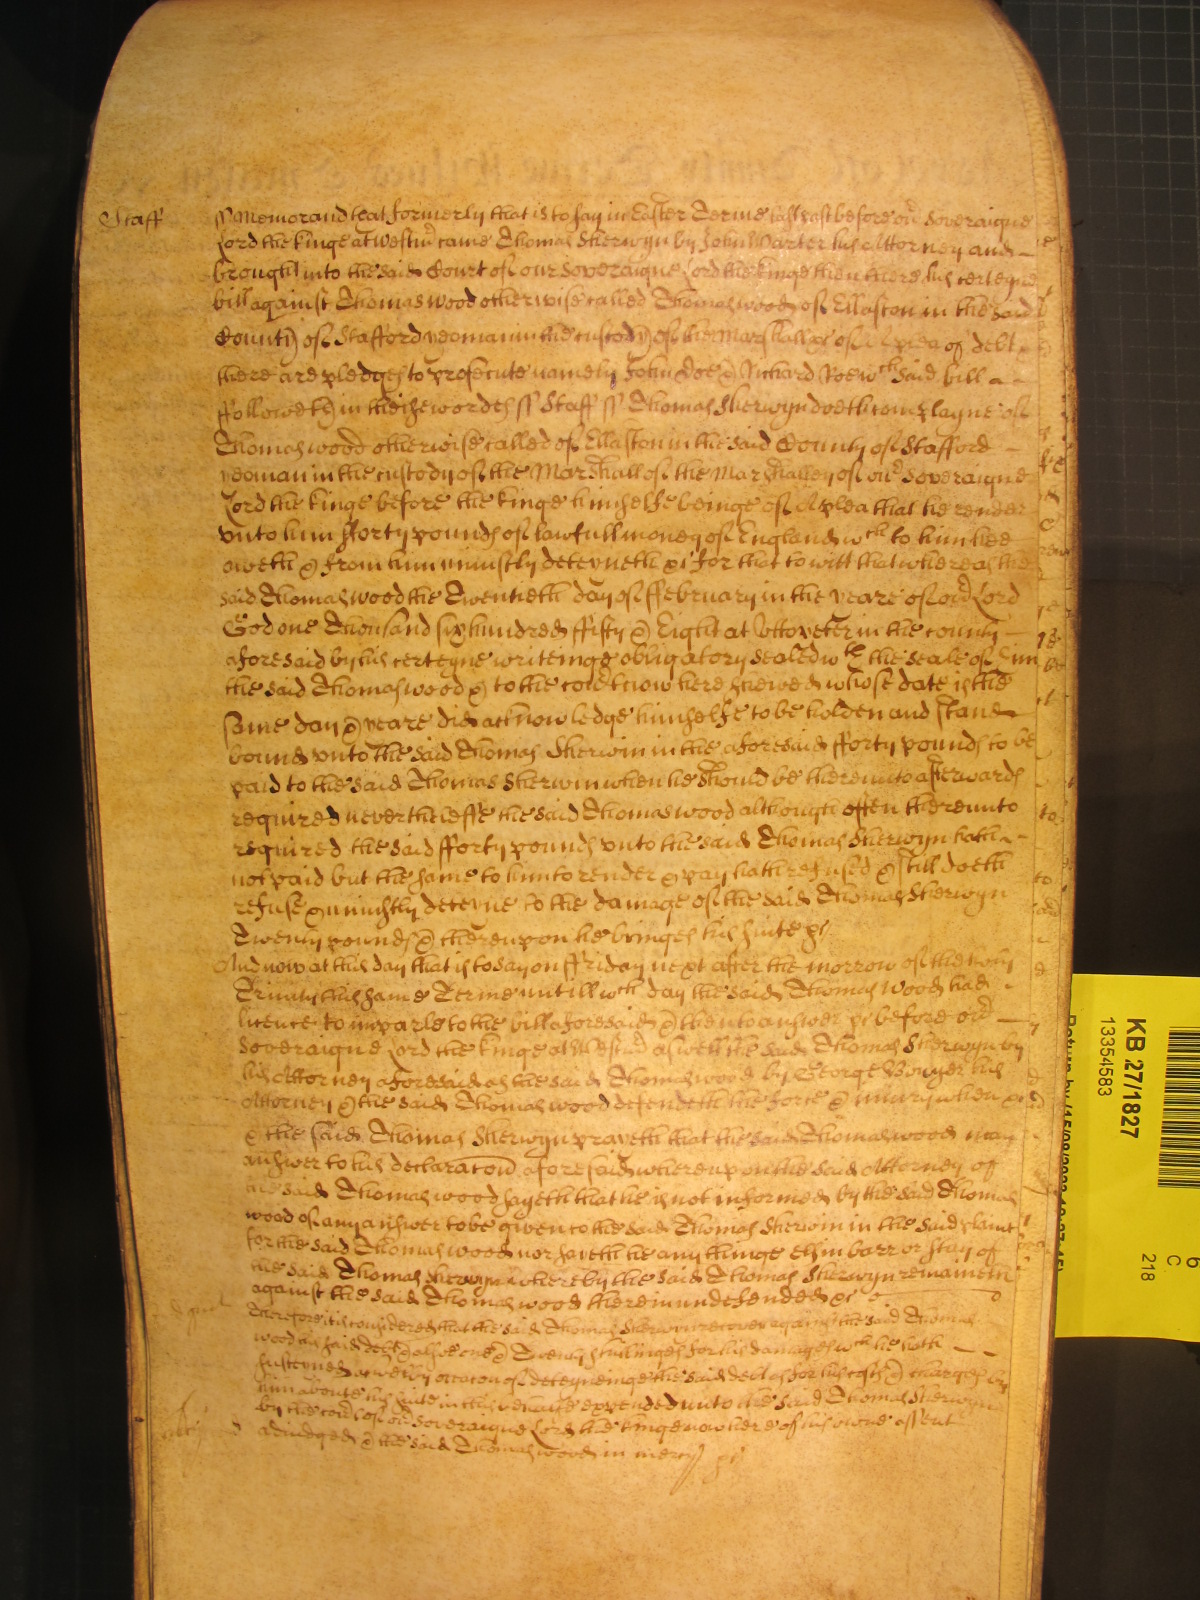 Staff ss Memorand that formerly that is to say in Easter Terme last past before our Soveraigne
Lord the Kinge at Westmr came Thomas Sherwyn by John Warter his Attorney and
brought into the said Court of our Soveraigne Lord the Kinge then there his certeyne
bill against Thomas Wood otherwise called Thomas Wood of Ellaston in the said
County of Stafford yeoman in the custody of the Marshall &c of a plea of debt
there are pledges to prosecute namely John Doe & Richard Roe wch said bill
ffolloweth in theise wordes ss Staff ss Thomas Sherwyn doth complayne of
Thomas Wood otherwise called of Ellaston in the said County of Stafford
yeoman in the custody of the Marshall of the Marshalsey of our Soveraigne
Lord the Kinge before the Kinge himselfe beinge of A plea that he render
unto him fforty pounds of lawfull money of England wch to him hee
oweth & from him uniustly deteyneth &c for that to witt that whereas the
said Thomas Wood the Twentieth day of ffebruary in the yeare of our Lord
God one Thousand six hundred ffifty & Eight at Uttoxeter in the county
aforesaid by his certeyne writeinge obligatory sealed wth the seale of him
the said Thomas Wood & to the Court now here shewed whose date is the
same day & yeare did acknowledge himselfe to be holden and stand
bound unto the said Thomas Sherwin in the aforesaid fforty pounds to be
paid to the said Thomas Sherwin when he should be thereunto afterwards
required neverthelesse the said Thomas Wood although often thereunto
required the said fforty pounds unto the said Thomas Sherwyn hath
not paid but the same to him to render & pay hath refused & still doeth
refuse & uniustly deteyne to the damage of the said Thomas Sherwyn
Twenty pounds & thereupon he bringes his suite &c
And now at this day that is to say on ffriday next after the morrow of the holy
Trinity this same Terme untill wch day the said Thomas Wood had
licence to imparle to the bill aforesaid & then to answer &c before our
Soveraigne Lord the Kinge at Westmr aswell the said Thomas Sherwyn by
his Attorney aforesaid as the said Thomas Wood by George Bowyer his
Attorney & the said Thomas Wood defendeth the force & iniury when &c
& the said Thomas Sherwyn prayeth that the said Thomas Wood may
answer to his declaracon aforesaid whereupon the said Attorney of
the said Thomas Wood sayeth that he is not informed by the said Thomas
Wood of any answer to be given to the said Thomas Sherwin in the said plaint
for the said Thomas Wood nor sayeth he any thinge els in barr or stay of
the said Thomas Sherwyn whereby the said Thomas Sherwyn remaineth
against the said Thomas Wood therein undefended &c
Therefore it is considered that the said Thomas Sherwyn recover against the said Thomas
Wood his said debt & alsoe one & Twenty shillinges for his damages wch he hath
susteyned aswell by occacon of deteyneinge the said debt as for his costs & charges by
him aboute his suite in this behalfe expended unto the said Thomas Sherwyn
by the Court of our Soveraigne Lord the Kinge now here of his owne assent
adiudged & the said Thomas Wood in mercy &c
KB 27/1827
13354583
6
C
218